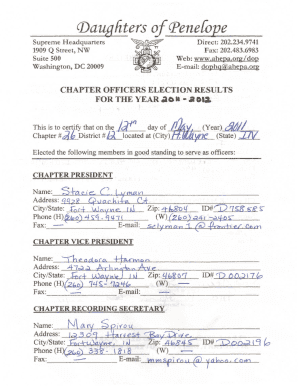 Daughters of Penelope
Supreme Headquarters
1909 Q Street, NW
Suite 500
Washington, DC 20009
Direct: 202.234.9741
Fax: 202.483.6983
Web: www.ahepa.org/dop
E-mail: dophq@ahepa.org
CHAPTER OFFICERS ELECTION RESULTS
FOR THE YEAR 2011 - 2012
This is to certify that on the 12th day of May, (Year) 2011
Chapter # 26 District # 12 located at (City) Ft. Wayne (State) IN
Elected the following members in good standing to serve as officers:
CHAPTER PRESIDENT
Name: Stacie C. Lyman
Address: 9928 Quachita Ct
City/State: Fort Wayne IN Zip: 46804 ID# D758585
Phone (H) (260) 459-9471 (W) (260) 241-2405
Fax: E-mail: sclyman1@frontier.com
CHAPTER VICE PRESIDENT
Name: Theodora Harman
Address: 4722 Arlington Ave
City/State: Fort Wayne IN Zip: 46807 ID# D002176
Phone (H) (260) 745-7246 (W)
Fax: E-mail:
CHAPTER RECORDING SECRETARY
Name: Mary Spirou
Address: 12309 Harvest Bay Drive
City/State: Fort Wayne, IN Zip: 46845 ID# D002196
Phone (H) (260) 338-1818 (W)
Fax: E-mail: mmspirou@yahoo.com